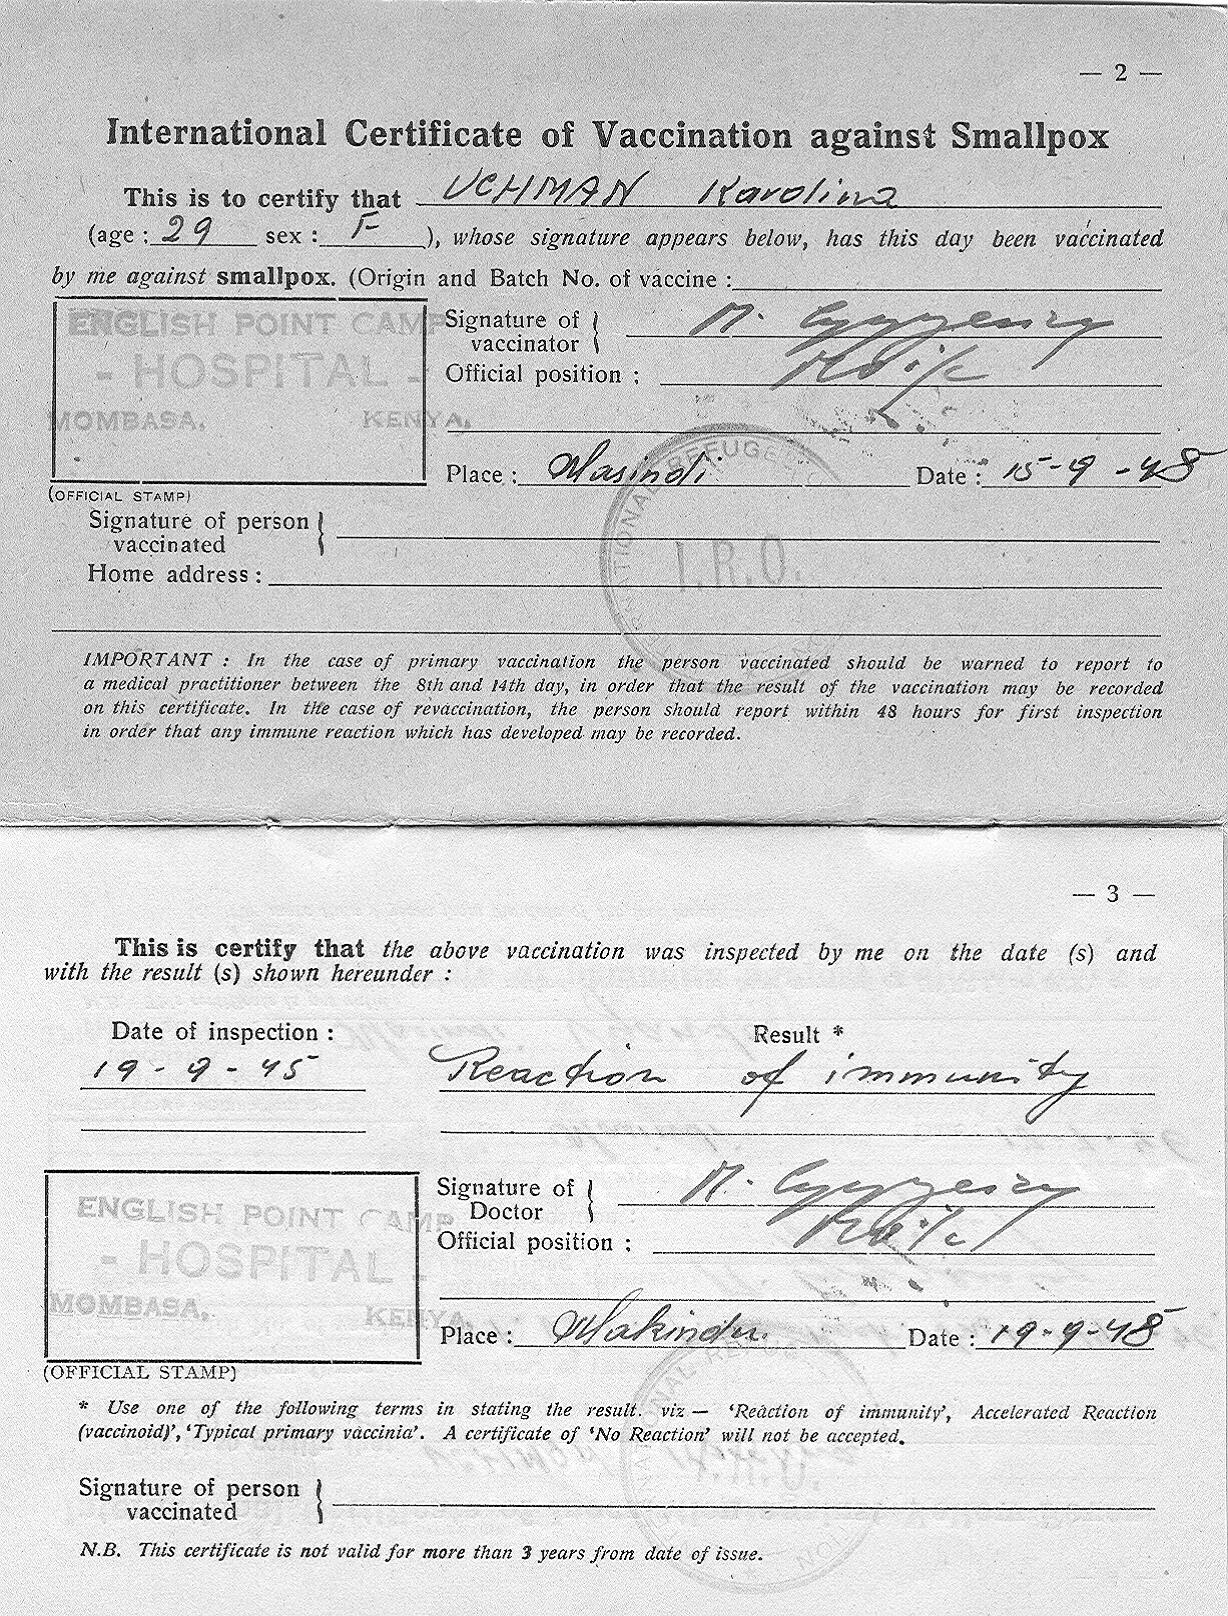 — 2 —
International Certificate of Vaccination against Smallpox
This is to certify that UCHMAN Karolina
(age : 29 sex : F ), whose signature appears below, has this day been vaccinated
by me against smallpox. (Origin and Batch No. of vaccine :
ENGLISH POINT CAMP
- HOSPITAL -
MOMBASA. KENYA.
(OFFICIAL STAMP)
Signature of vaccinator M.
Official position :
Place : Masindi Date : 15-9-48
I.R.O.
Signature of person
vaccinated
Home address :
IMPORTANT : In the case of primary vaccination the person vaccinated should be warned to report to
a medical practitioner between the 8th and 14th day, in order that the result of the vaccination may be recorded
on this certificate. In the case of revaccination, the person should report within 48 hours for first inspection
in order that any immune reaction which has developed may be recorded.
— 3 —
This is certify that the above vaccination was inspected by me on the date (s) and
with the result (s) shown hereunder :
Date of inspection : Result *
19-9-45 Reaction of immunity
ENGLISH POINT CAMP
- HOSPITAL -
MOMBASA. KENYA.
(OFFICIAL STAMP)
Signature of Doctor M.
Official position :
Place : Makindu. Date : 19-9-48
* Use one of the following terms in stating the result. viz — 'Reaction of immunity', Accelerated Reaction
(vaccinoid)', 'Typical primary vaccinia'. A certificate of 'No Reaction' will not be accepted.
Signature of person
vaccinated
N.B. This certificate is not valid for more than 3 years from date of issue.